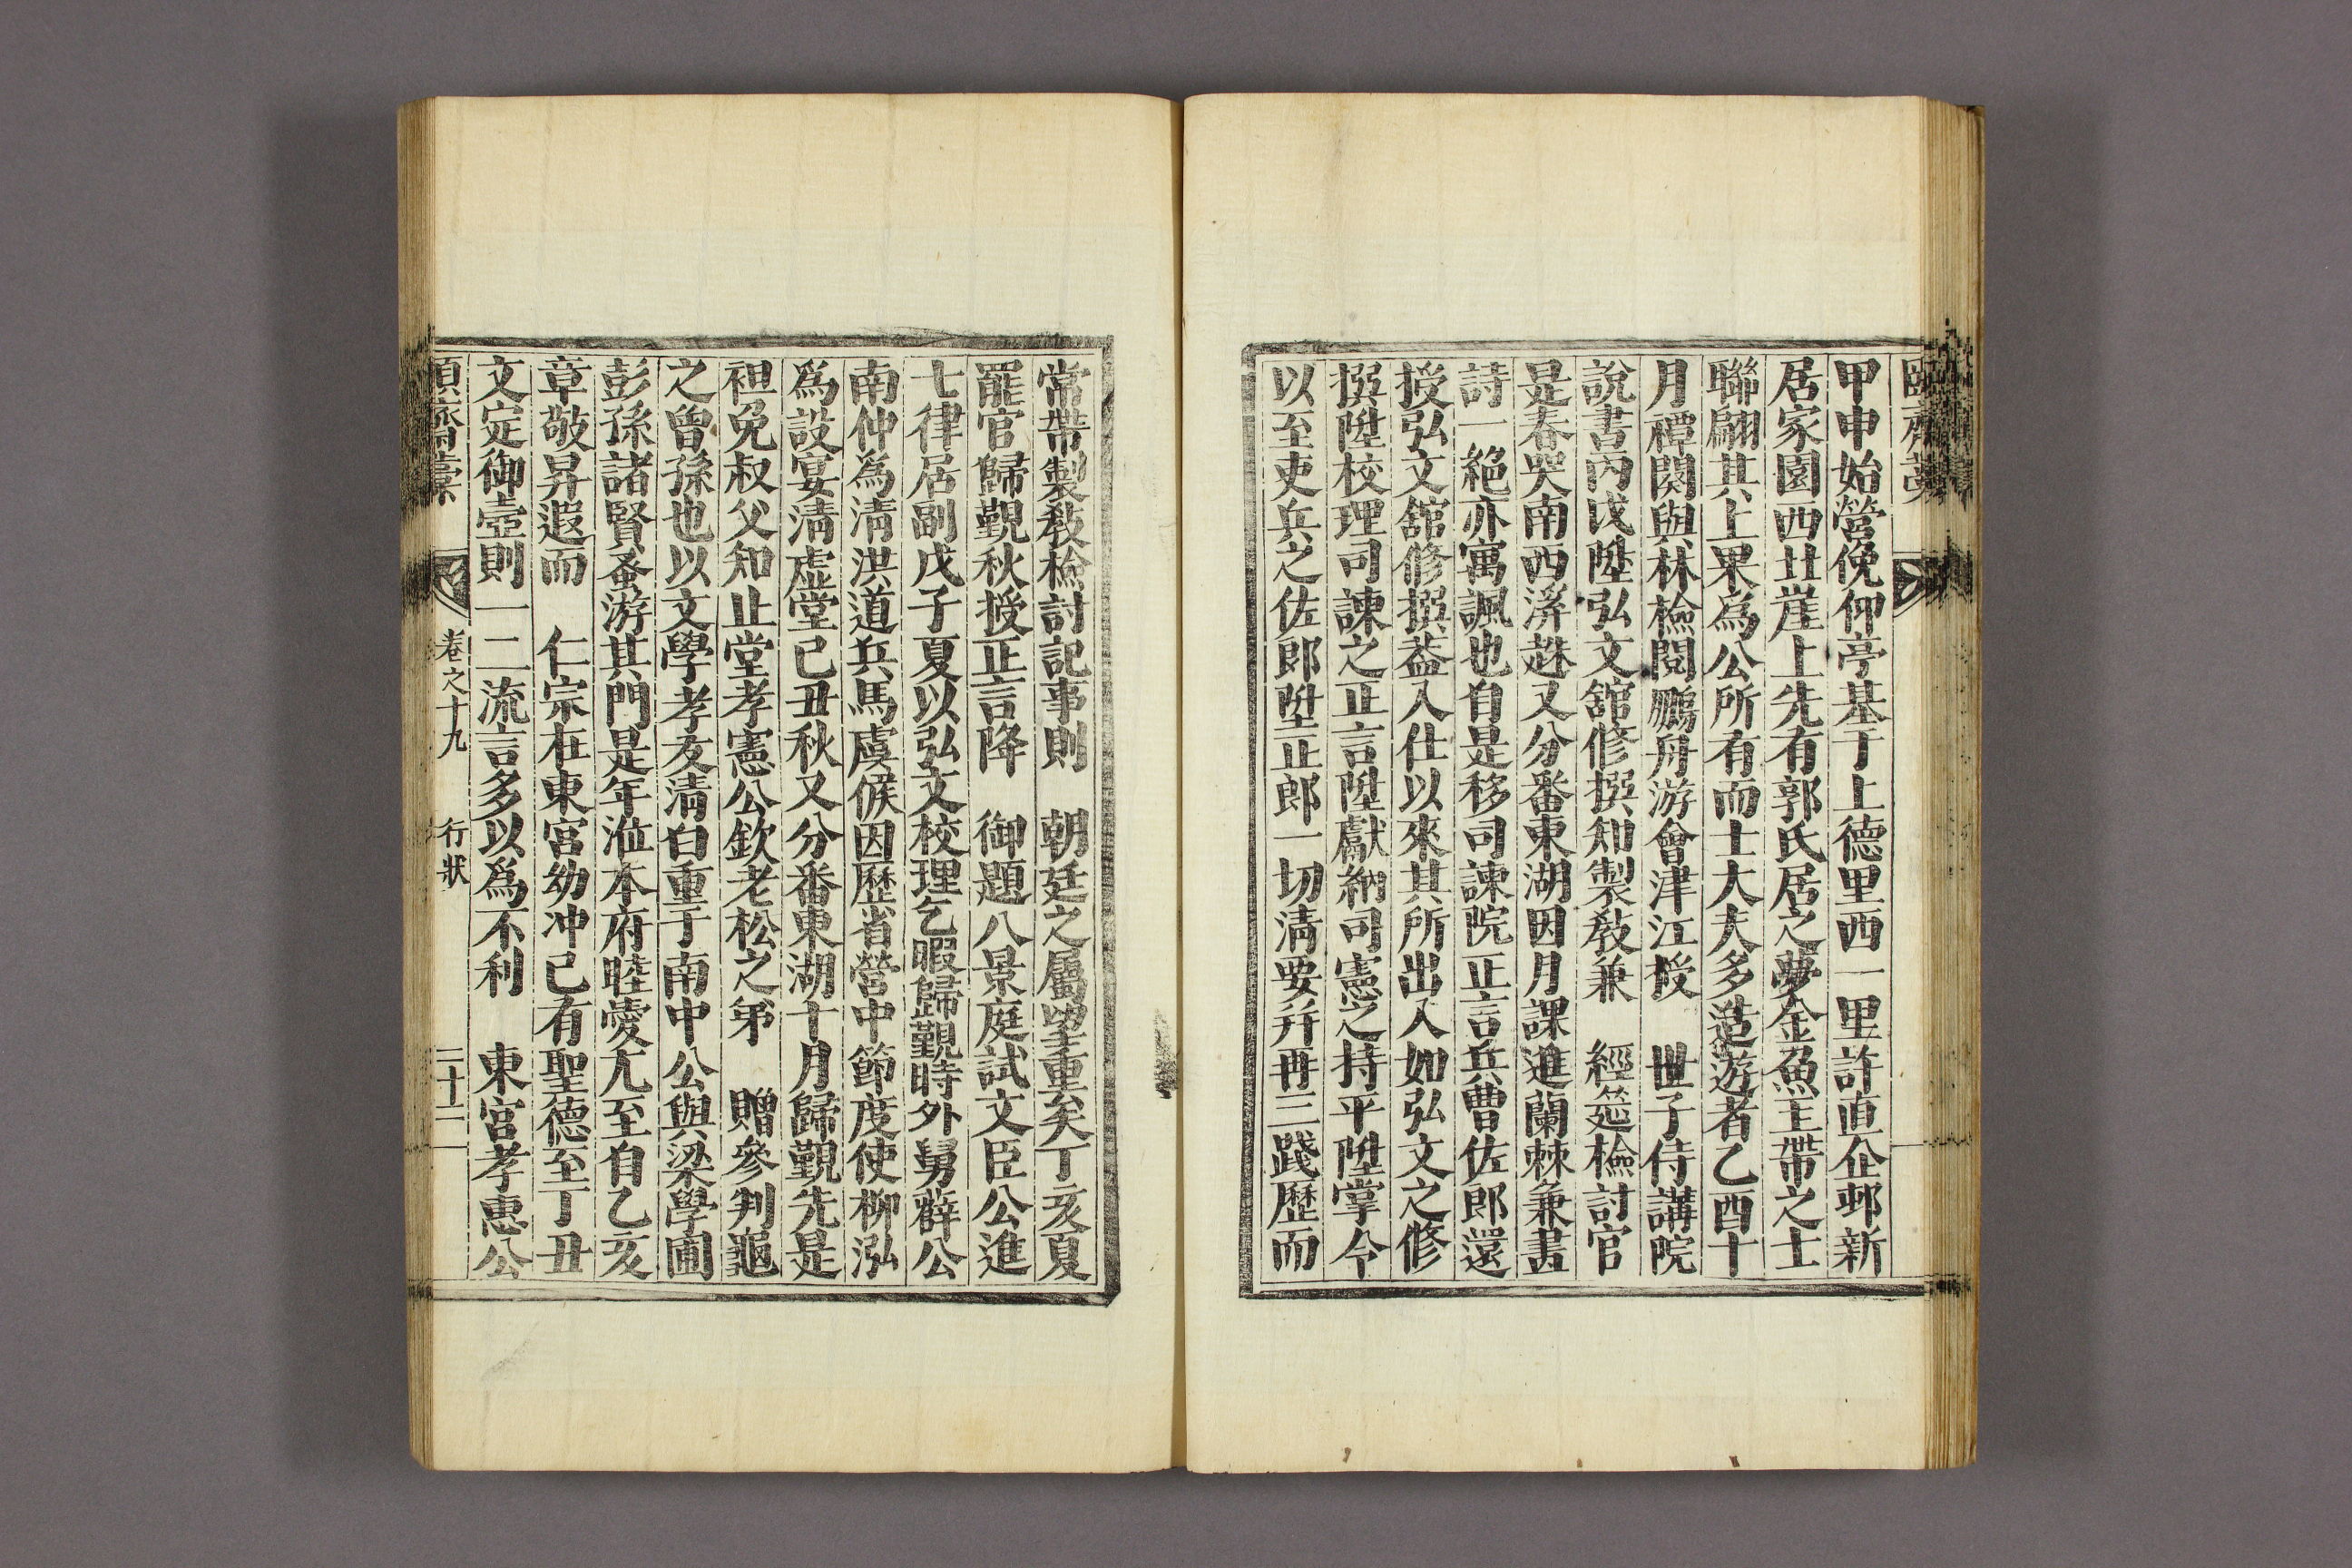 甲申始營俛仰亭基于上德里西一里許直企邨新
居家園西廿崖上先有郭氏居之夢金魚玉帶之士
聯翩其上果爲公所有而士大夫多造遊者乙酉十
月禫闋與林檢閱鵬舟游會津江授 世子侍講院
說書丙戌陞弘文舘修撰知製敎兼 經筵檢討官
是春哭南西溪趎又分番東湖因月課進蘭棘兼畫
詩一絶亦寓諷也自是移司諫院正言兵曹佐郎還
授弘文舘修撰葢入仕以來其所出入如弘文之修
撰陞校理司諫之正言陞獻納司憲之持平陞掌令
以至吏兵之佐郎陞正郎一切淸要幷再三踐歷而
常帶製敎檢討記事則 朝廷之屬望重矣丁亥夏
罷官歸覲秋授正言降 御題八景庭試文臣公進
七律居副戊子夏以弘文校理乞暇歸覲時外舅薛公
南仲爲淸洪道兵馬虞候因歷省營中節度使柳泓
爲設宴淸虛堂己丑秋又分番東湖十月歸覲先是
袒免叔父知止堂孝憲公欽老松之第 贈參判龜
之曾孫也以文學孝友淸白重于南中公與梁學圃
彭孫諸賢蚤游其門是年涖本府睦愛尤至自乙亥
章敬昇遐而 仁宗在東宮幼冲已有聖德至丁丑
文定御壼則一二流言多以爲不利 東宮孝惠公
頤齋藁 卷之十九 行狀 二十二